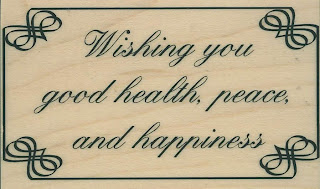 Wishing you
good health, peace,
and happiness